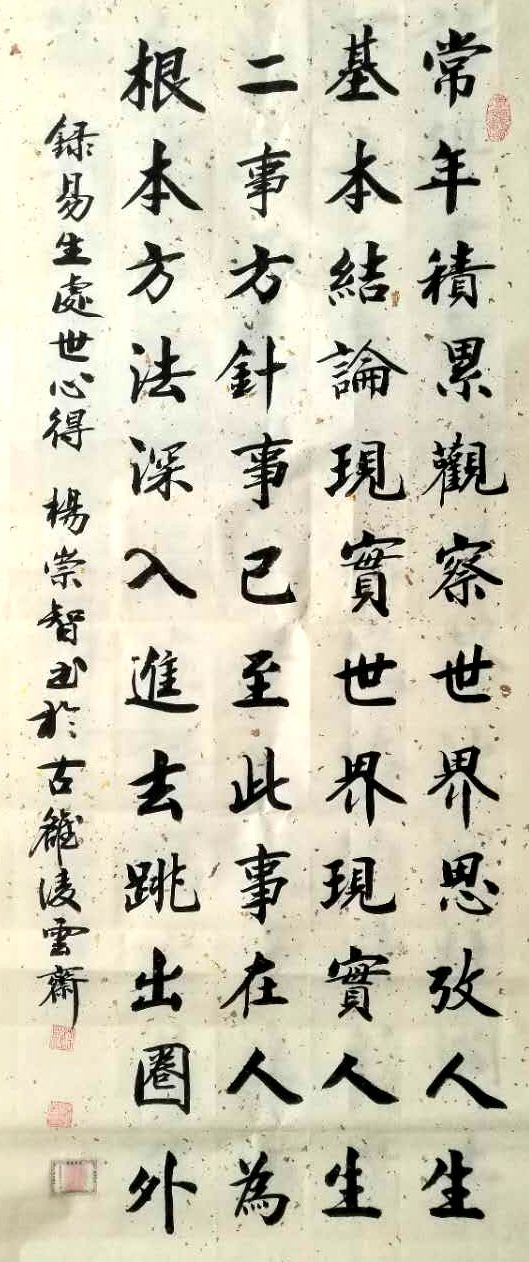 常年積累觀察世界思攷人生
基本結論現實世界現實人生
二事方針事已至此事在人為
根本方法深入進去跳出圈外
録易生處世心得 楊崇智书於古雒凌雲齋